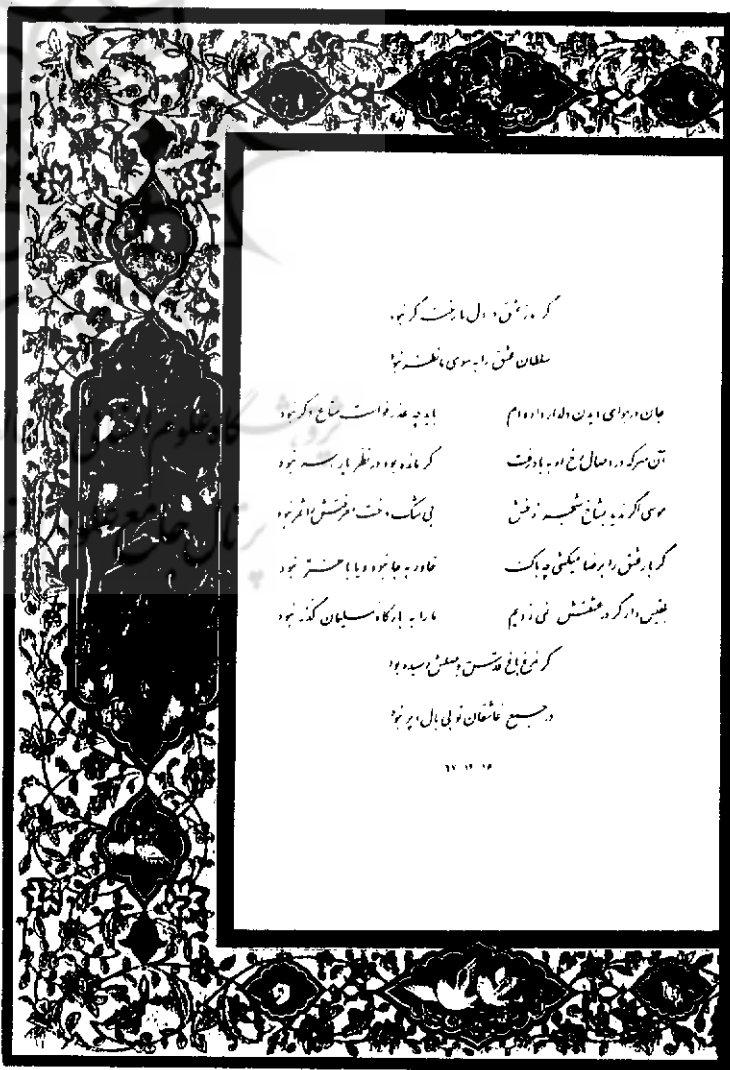 گر سوز عشق در دل ما رخنه گر نبود
سلطان عشق را به سوی ما نظر نبود
جان در هوای دیدن دلدار داده ام باید چه عذر خواست متاع دگر نبود
آن سر که در وصال رخ او به باد رفت گر مانده بود در نظر یار سر نبود
موسی اگر ندید به شاخ شجر رخش بی شک درخت معرفتش را ثمر نبود
گر بار عشق را به رضا میکشی چه باک خاور به جا نبود و یا باختر نبود
بلقیس وار گر در عشقش نمی زدیم ما را به بارگاه سلیمان گذر نبود
گر مرغ باغ قدس به وصلش رسیده بود
در جمع عاشقان تو بی بال و پر نبود
پژوهشگاه علوم انسانی
پرتال جامع علوم